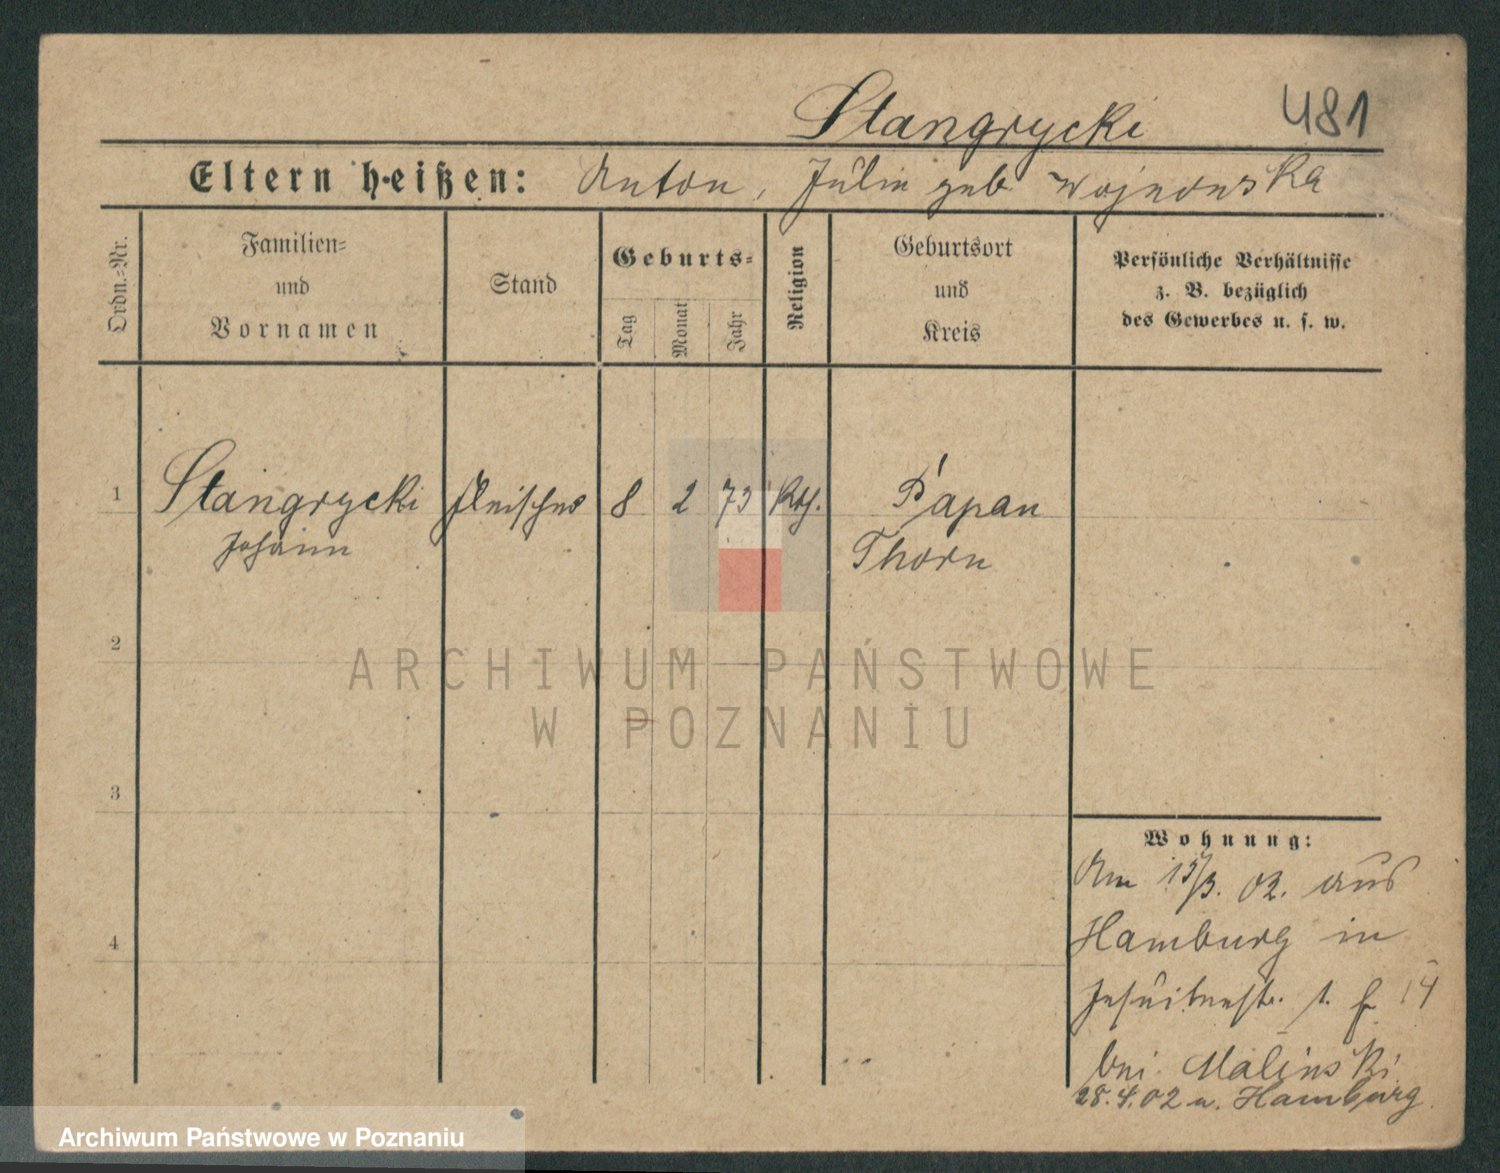 Stangrycki 481
Eltern heißen: Anton, Julie geb Wojnowska
Ordn.=Nr.
Familien=
und
Vornamen
Stand
Geburts=
Tag
Monat
Jahr
Religion
Geburtsort
und
Kreis
Persönliche Verhältnisse
z. B. bezüglich
des Gewerbes u. s. w.
1 Stangrycki Fleischer 8 2 73 Kth. Papan
Johann Thorn
2
ARCHIWUM PAŃSTWOWE
W POZNANIU
3
Wohnung:
Am 15/3. 02. aus
4
Hamburg in
Jesuitenstr. 1. 14
bei Malinski
28.4.02 n. Hamburg.
Archiwum Państwowe w Poznaniu